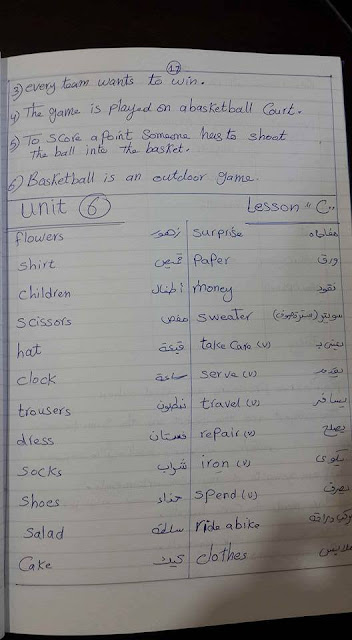 17
3) every team wants to win.
4) The game is played on abasketball Court.
5) To score apoint someone has to shoot
the ball into the basket.
6) Basketball is an outdoor game.
Unit 6 Lesson "C"
flowers زهور surprise مفاجاه
shirt قميص paper ورق
children أطفال money نقود
scissors مقص sweater سويتر
hat قبعة take care (v) يعتنى بـ
clock ساعة serve (v) يقدم
trousers بنطلون travel (v) يسافر
dress فستان repair (v) يصلح
socks شراب iron (v) يكوى
shoes حذاء spend (v) يصرف
salad سلطة ride abike يركب دراجة
cake كيك clothes ملابس